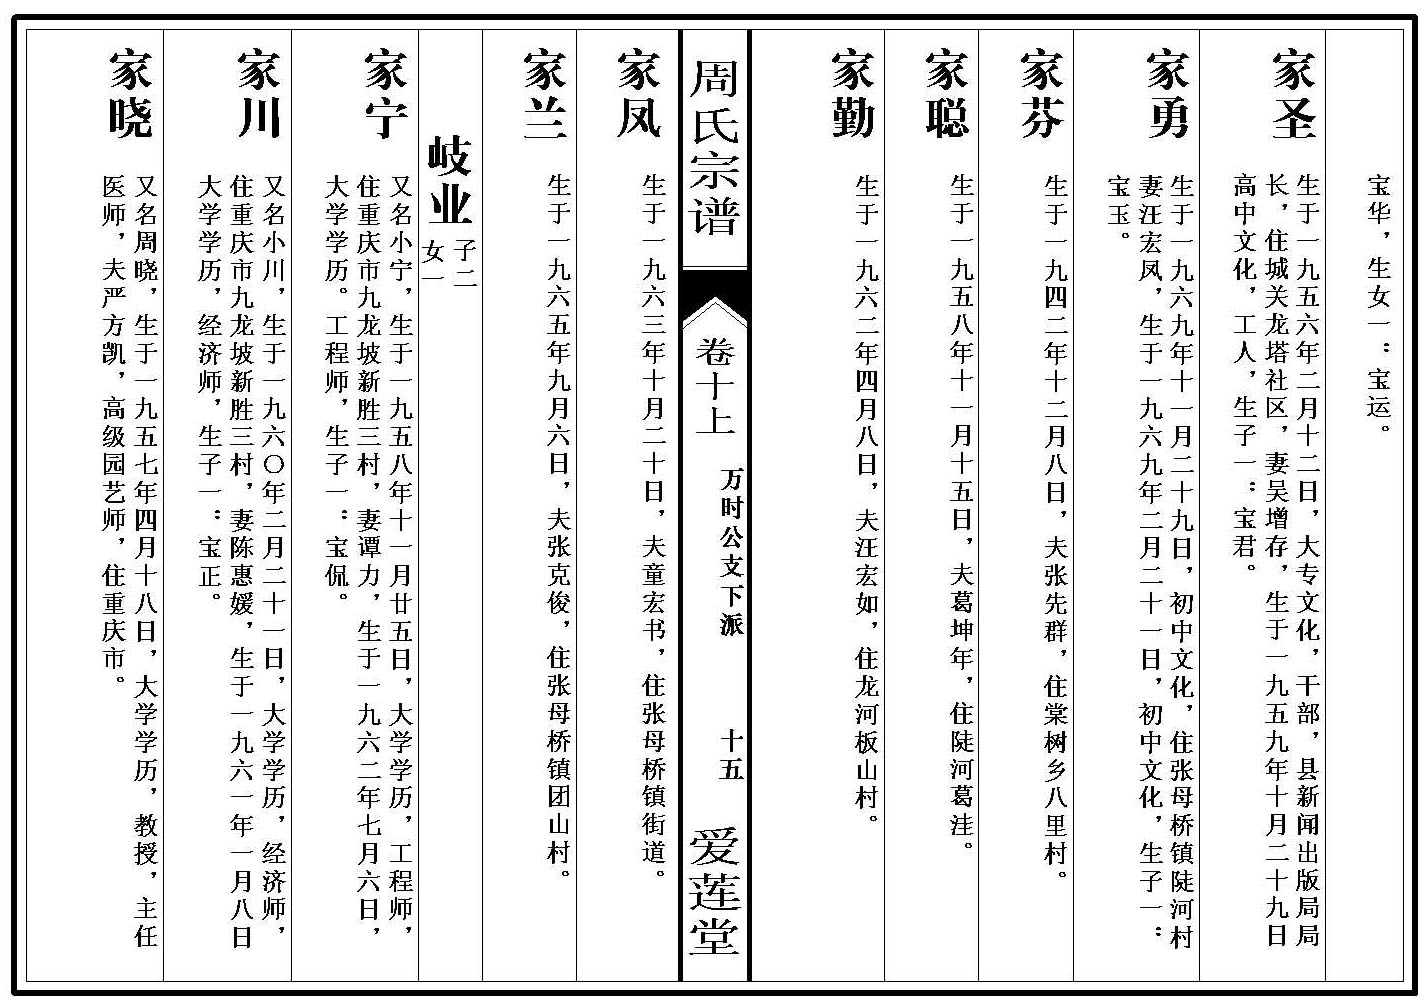 宝华，生女一：宝运。
家圣
生于一九五六年二月十二日，大专文化，干部，县新闻出版局局
长，住城关龙塔社区，妻吴增存，生于一九五九年十月二十九日
高中文化，工人，生子一：宝君。
家勇
生于一九六九年十一月二十九日，初中文化，住张母桥镇陡河村
妻汪宏凤，生于一九六九年二月二十一日，初中文化，生子一：
宝玉。
家芬
生于一九四二年十二月八日，夫张先群，住棠树乡八里村。
家聪
生于一九五八年十一月十五日，夫葛坤年，住陡河葛洼。
家勤
生于一九六二年四月八日，夫汪宏如，住龙河板山村。
周氏宗谱
卷十上
万时公支下派
十五
爱莲堂
家凤
生于一九六三年十月二十日，夫童宏书，住张母桥镇街道。
家兰
生于一九六五年九月六日，夫张克俊，住张母桥镇团山村。
岐业
子二
女一
家宁
又名小宁，生于一九五八年十一月廿五日，大学学历，工程师，
住重庆市九龙坡新胜三村，妻谭力，生于一九六二年七月六日，
大学学历。工程师，生子一：宝侃。
家川
又名小川，生于一九六〇年二月二十一日，大学学历，经济师，
住重庆市九龙坡新胜三村，妻陈惠媛，生于一九六一年一月八日
大学学历，经济师，生子一：宝正。
家晓
又名周晓，生于一九五七年四月十八日，大学学历，教授，主任
医师，夫严方凯，高级园艺师，住重庆市。